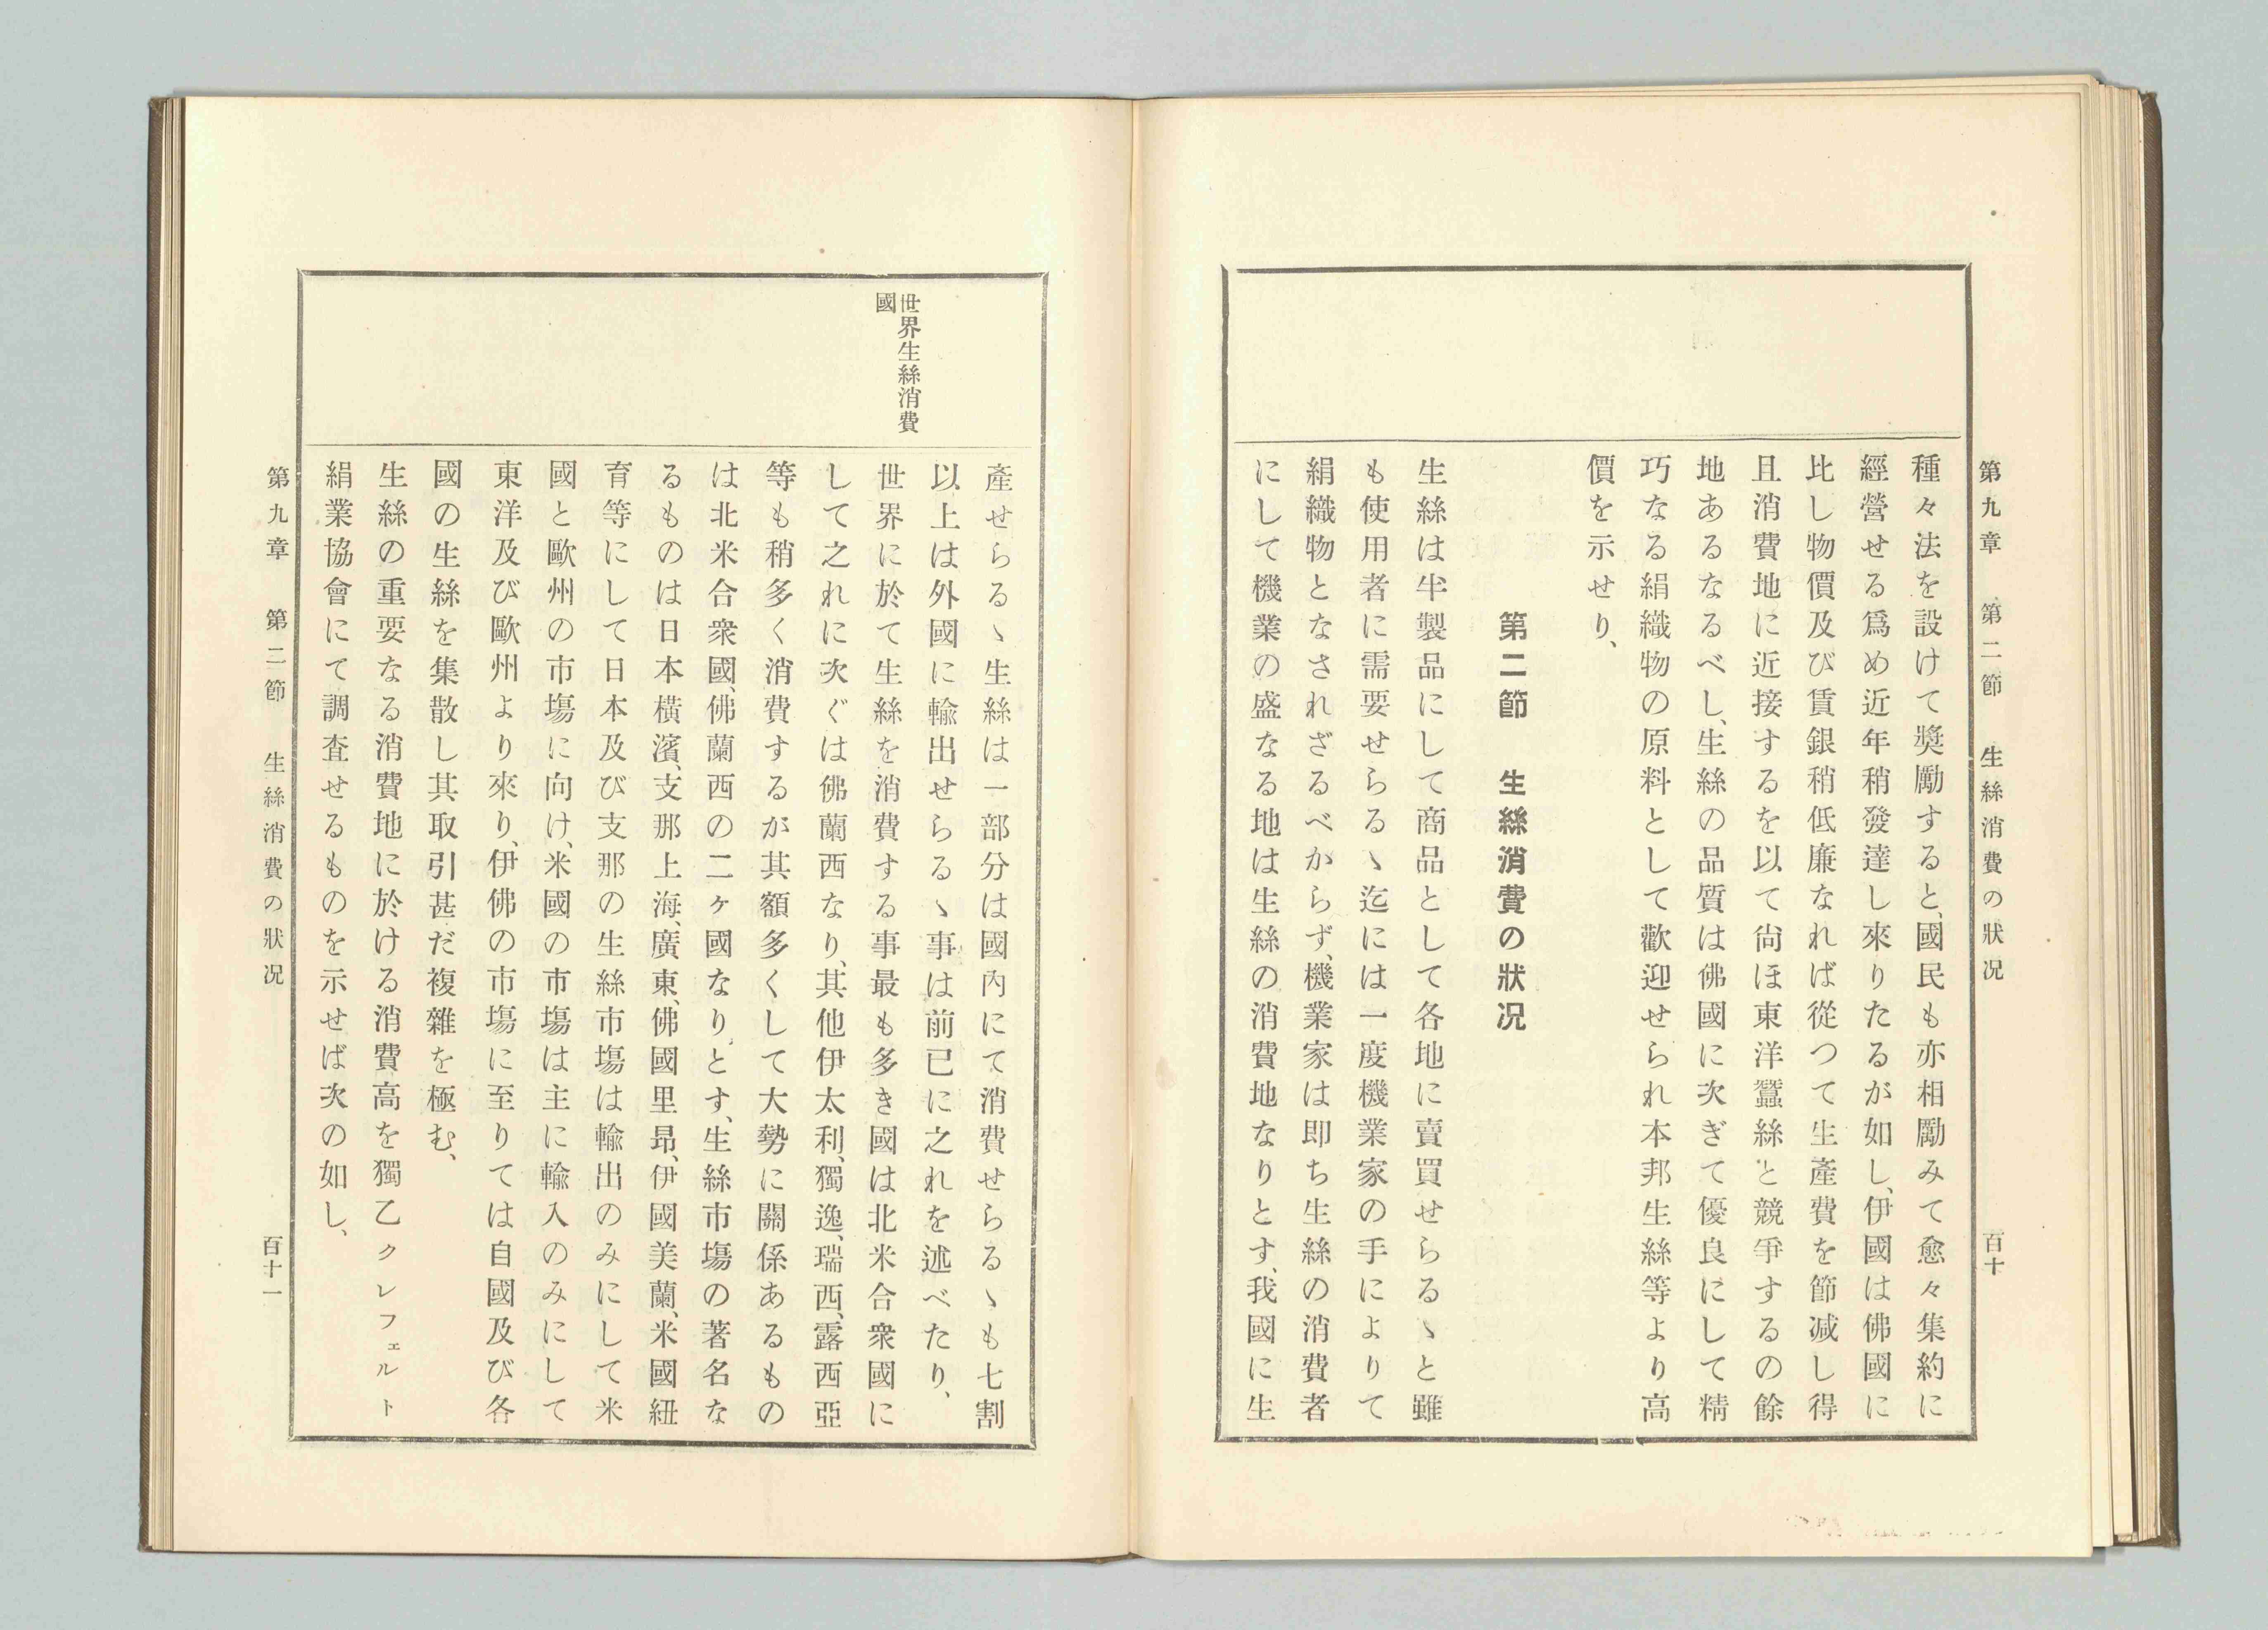 第九章　第二節　生絲消費の狀況
百十
種々法を設けて奬勵すると、國民も亦相勵みて愈々集約に
經營せる爲め近年稍發達し來りたるが如し、伊國は佛國に
比し物價及び賃銀稍低廉なれば從つて生產費を節减し得
且消費地に近接するを以て尙ほ東洋蠶絲と競爭するの餘
地あるなるべし、生絲の品質は佛國に次ぎて優良にして精
巧なる絹織物の原料として歡迎せられ本邦生絲等より高
價を示せり、
第二節　生絲消費の狀况
生絲は半製品にして商品として各地に賣買せらるゝと雖
も使用者に需要せらるゝ迄には一度機業家の手によりて
絹織物となされざるべからず、機業家は即ち生絲の消費者
にして機業の盛なる地は生絲の消費地なりとす、我國に生
世界生絲消費
國
產せらるゝ生絲は一部分は國內にて消費せらるゝも七割
以上は外國に輸出せらるゝ事は前已に之れを述べたり、
世界に於て生絲を消費する事最も多き國は北米合衆國に
して之れに次ぐは佛蘭西なり、其他伊太利、獨逸、瑞西、露西亞
等も稍多く消費するが其額多くして大勢に關係あるもの
は北米合衆國、佛蘭西の二ヶ國なりとす、生絲市塲の著名な
るものは日本橫濱、支那上海、廣東、佛國里昂、伊國美蘭、米國紐
育等にして日本及び支那の生絲市塲は輸出のみにして米
國と歐州の市塲に向け、米國の市塲は主に輸入のみにして
東洋及び歐州より來り、伊佛の市塲に至りては自國及び各
國の生絲を集散し其取引甚だ複雜を極む、
生絲の重要なる消費地に於ける消費高を獨乙クレフェルト
絹業協會にて調査せるものを示せば次の如し、
第九章　第二節　生絲消費の狀况
百十一